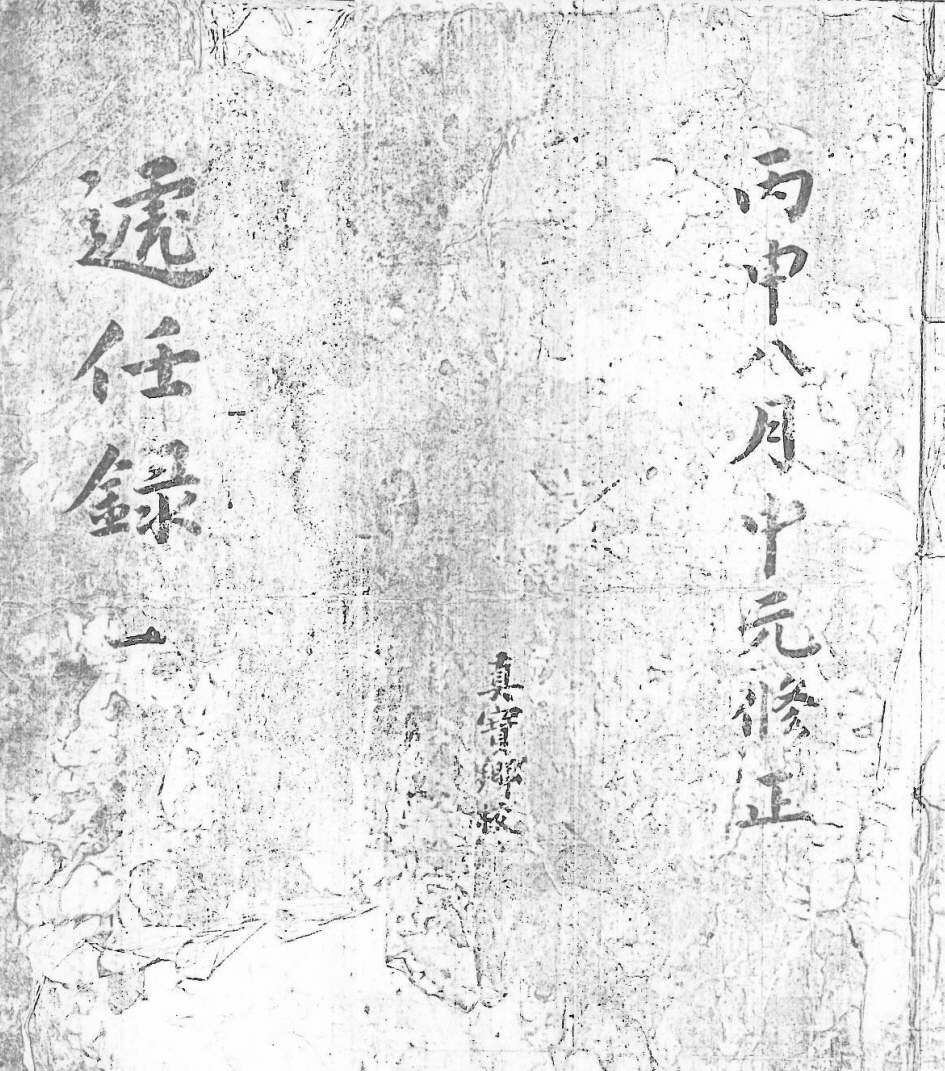 丙申八月中元修正
真寶鄕校
遞任録一